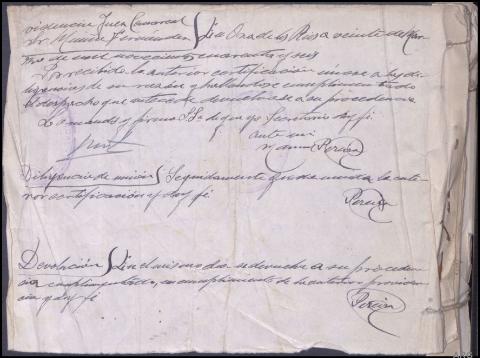 Juez Comarcal
Sr. Muñiz Fernández / En Oza de los Ríos a veinte de
de mil novecientos cuarenta y seis
Por recibida la anterior certificación únase a las di-
ligencias de su razón y hallándose cumplimentado
el despacho que antecede devuélvase a su procedencia
Lo mandó y firma S.Sª de que yo Secretario doy fé
ante mi
Pereira
Diligencia de unión / Seguidamente queda unida la ante-
rior certificación y doy fé
Pereira
Devolución / En el mismo día se devuelve a su proceden-
cia cumplimentado, en cumplimiento de la anterior providen-
cia y doy fé
Pereira